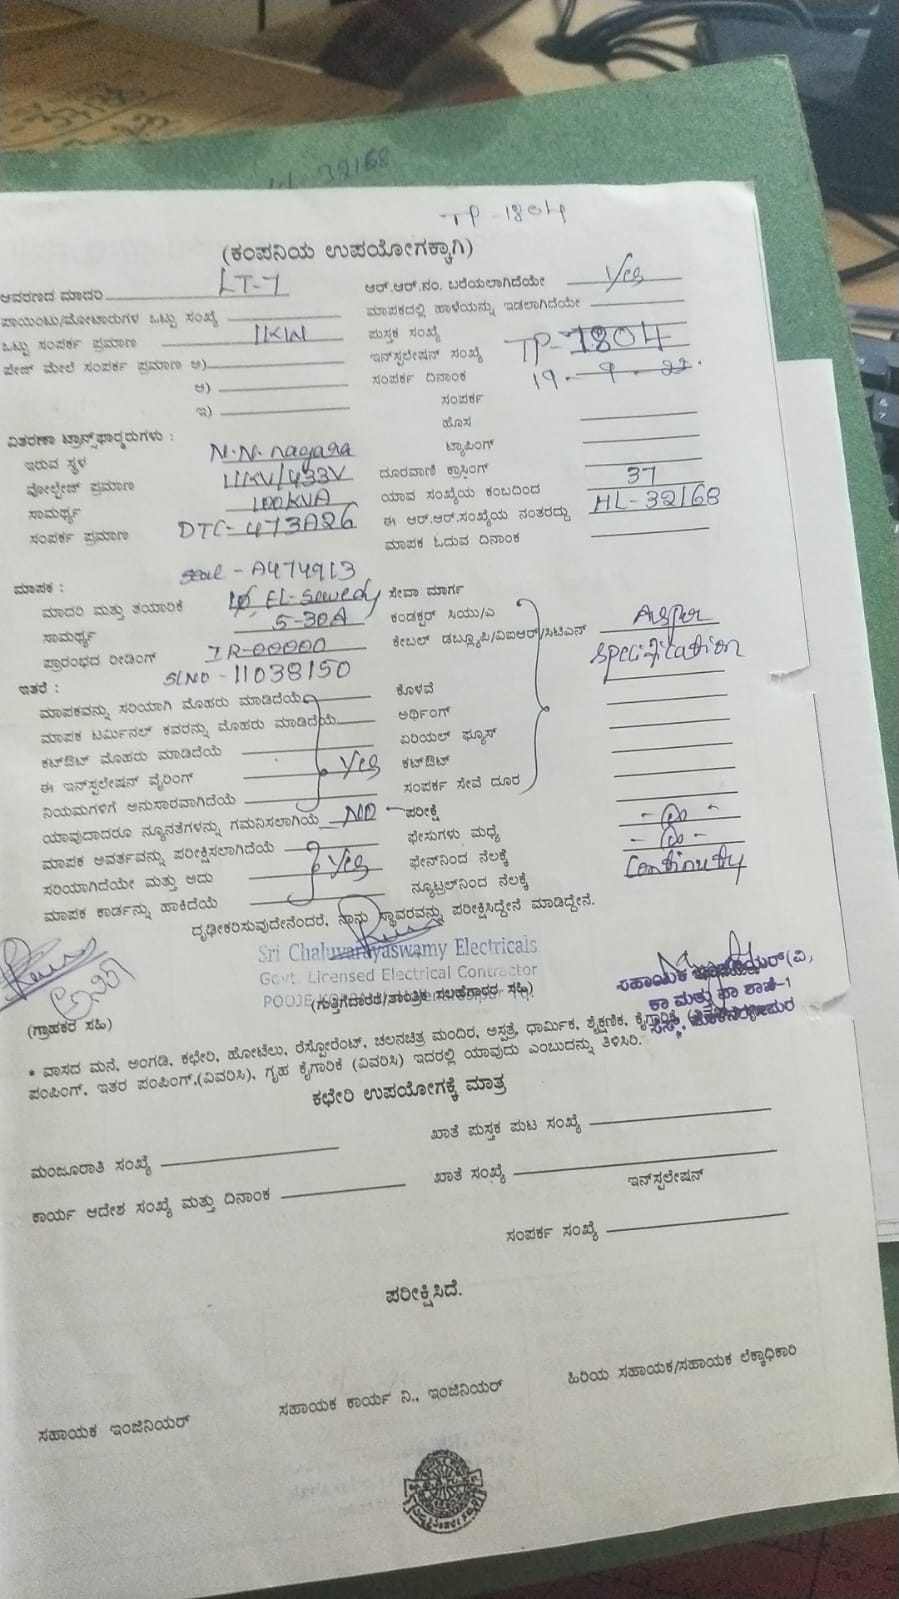 HL-32168
TP-1804
(ಕಂಪನಿಯ ಉಪಯೋಗಕ್ಕಾಗಿ)
ಆವರಣದ ಮಾದರಿ LT-7 ಆರ್.ಆರ್.ನಂ. ಬರೆಯಲಾಗಿದೆಯೇ Yes
ಪಾಯಿಂಟು/ಮೋಟಾರುಗಳ ಒಟ್ಟು ಸಂಖ್ಯೆ ಮಾಪಕದಲ್ಲಿ ಹಾಳೆಯನ್ನು ಇಡಲಾಗಿದೆಯೇ
ಒಟ್ಟು ಸಂಪರ್ಕ ಪ್ರಮಾಣ 11KW ಪುಸ್ತಕ ಸಂಖ್ಯೆ
ಫೇಜ್ ಮೇಲೆ ಸಂಪರ್ಕ ಪ್ರಮಾಣ ಅ) ಇನ್‌ಸ್ಪಲೇಷನ್ ಸಂಖ್ಯೆ TP-1804
ಆ) ಸಂಪರ್ಕ ದಿನಾಂಕ 19-9-22.
ಇ) ಸಂಪರ್ಕ
ಹೊಸ
ವಿತರಣಾ ಟ್ರಾನ್ಸ್‌ಫಾರ್ಮರುಗಳು : ಟ್ಯಾಪಿಂಗ್
ಇರುವ ಸ್ಥಳ N.N. nagara ದೂರವಾಣಿ ಕ್ರಾಸಿಂಗ್
ವೋಲ್ಟೇಜ್ ಪ್ರಮಾಣ 11KV/433V ಯಾವ ಸಂಖ್ಯೆಯ ಕಂಬದಿಂದ 37
ಸಾಮರ್ಥ್ಯ 100KVA ಈ ಆರ್.ಆರ್.ಸಂಖ್ಯೆಯ ನಂತರದ್ದು HL-32168
ಸಂಪರ್ಕ ಪ್ರಮಾಣ DTC-473A26 ಮಾಪಕ ಓದುವ ದಿನಾಂಕ
ಮಾಪಕ : Seal - A474913
ಮಾದರಿ ಮತ್ತು ತಯಾರಿಕೆ EL-Sewedy ಸೇವಾ ಮಾರ್ಗ
ಸಾಮರ್ಥ್ಯ 5-30A ಕಂಡಕ್ಟರ್ ಸಿಯು/ಎ
ಪ್ರಾರಂಭದ ರೀಡಿಂಗ್ IR-00000 ಕೇಬಲ್ ಡಬ್ಲ್ಯೂಪಿ/ವಿಐಆರ್/ಸಿಟಿಎನ್ Asper
ಇತರೆ : SLNO-11038150 Specification
ಮಾಪಕವನ್ನು ಸರಿಯಾಗಿ ಮೊಹರು ಮಾಡಿದೆಯೆ ಕೊಳವೆ
ಮಾಪಕ ಟರ್ಮಿನಲ್ ಕವರನ್ನು ಮೊಹರು ಮಾಡಿದೆಯೆ ಅರ್ಥಿಂಗ್
ಕಟ್‌ಔಟ್ ಮೊಹರು ಮಾಡಿದೆಯೆ ಏರಿಯಲ್ ಫ್ಯೂಸ್
ಈ ಇನ್‌ಸ್ಪಲೇಷನ್ ವೈರಿಂಗ್ Yes ಕಟ್‌ಔಟ್
ನಿಯಮಗಳಿಗೆ ಅನುಸಾರವಾಗಿದೆಯೆ ಸಂಪರ್ಕ ಸೇವೆ ದೂರ
ಯಾವುದಾದರೂ ನ್ಯೂನತೆಗಳನ್ನು ಗಮನಿಸಲಾಗಿಯೆ NO ಪರೀಕ್ಷೆ
ಮಾಪಕ ಅವರ್ತವನ್ನು ಪರೀಕ್ಷಿಸಲಾಗಿದೆಯೆ ಫೇಸುಗಳು ಮಧ್ಯೆ
ಸರಿಯಾಗಿದೆಯೇ ಮತ್ತು ಅದು Yes ಫೇಸ್‌ನಿಂದ ನೆಲಕ್ಕೆ
ಮಾಪಕ ಕಾರ್ಡನ್ನು ಹಾಕಿದೆಯೆ ನ್ಯೂಟ್ರಲ್‌ನಿಂದ ನೆಲಕ್ಕೆ Continuty
ದೃಢೀಕರಿಸುವುದೇನೆಂದರೆ, ನಾನು ಸ್ಥಾವರವನ್ನು ಪರೀಕ್ಷಿಸಿದ್ದೇನೆ ಮಾಡಿದ್ದೇನೆ.
Sri Chaluvarayaswamy Electricals
Govt. Licensed Electrical Contractor
(ಗುತ್ತಿಗೆದಾರರ/ತಾಂತ್ರಿಕ ಸಲಹೆಗಾರರ ಸಹಿ)
ಸಹಾಯಕ ಇಂಜಿನಿಯರ್(ವಿ,
ಕಾ ಮತ್ತು ಪಾ ಶಾಖೆ-1
(ಗ್ರಾಹಕರ ಸಹಿ)
* ವಾಸದ ಮನೆ, ಅಂಗಡಿ, ಕಛೇರಿ, ಹೋಟೆಲು, ರೆಸ್ಟೋರೆಂಟ್, ಚಲನಚಿತ್ರ ಮಂದಿರ, ಅಸ್ಪತ್ರೆ, ಧಾರ್ಮಿಕ, ಶೈಕ್ಷಣಿಕ, ಕೈಗಾರಿಕೆ
ಪಂಪಿಂಗ್, ಇತರ ಪಂಪಿಂಗ್,(ವಿವರಿಸಿ), ಗೃಹ ಕೈಗಾರಿಕೆ (ವಿವರಿಸಿ) ಇದರಲ್ಲಿ ಯಾವುದು ಎಂಬುದನ್ನು ತಿಳಿಸಿರಿ.
ಕಛೇರಿ ಉಪಯೋಗಕ್ಕೆ ಮಾತ್ರ
ಮಂಜೂರಾತಿ ಸಂಖ್ಯೆ ಖಾತೆ ಪುಸ್ತಕ ಪುಟ ಸಂಖ್ಯೆ
ಕಾರ್ಯ ಆದೇಶ ಸಂಖ್ಯೆ ಮತ್ತು ದಿನಾಂಕ ಖಾತೆ ಸಂಖ್ಯೆ
ಇನ್‌ಸ್ಪಲೇಷನ್
ಸಂಪರ್ಕ ಸಂಖ್ಯೆ
ಪರೀಕ್ಷಿಸಿದೆ.
ಸಹಾಯಕ ಇಂಜಿನಿಯರ್ ಸಹಾಯಕ ಕಾರ್ಯ ನಿ., ಇಂಜಿನಿಯರ್ ಹಿರಿಯ ಸಹಾಯಕ/ಸಹಾಯಕ ಲೆಕ್ಕಾಧಿಕಾರಿ